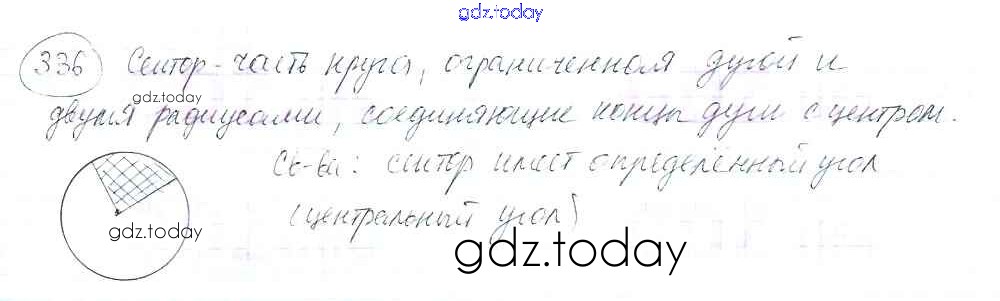 gdz.today
336 Сектор - часть круга, ограниченная дугой и
gdz.today
двумя радиусами, соединяющие концы дуги с центром.
Св-ва: сектор имеет определённый угол
(центральный угол)
gdz.today
gdz.today